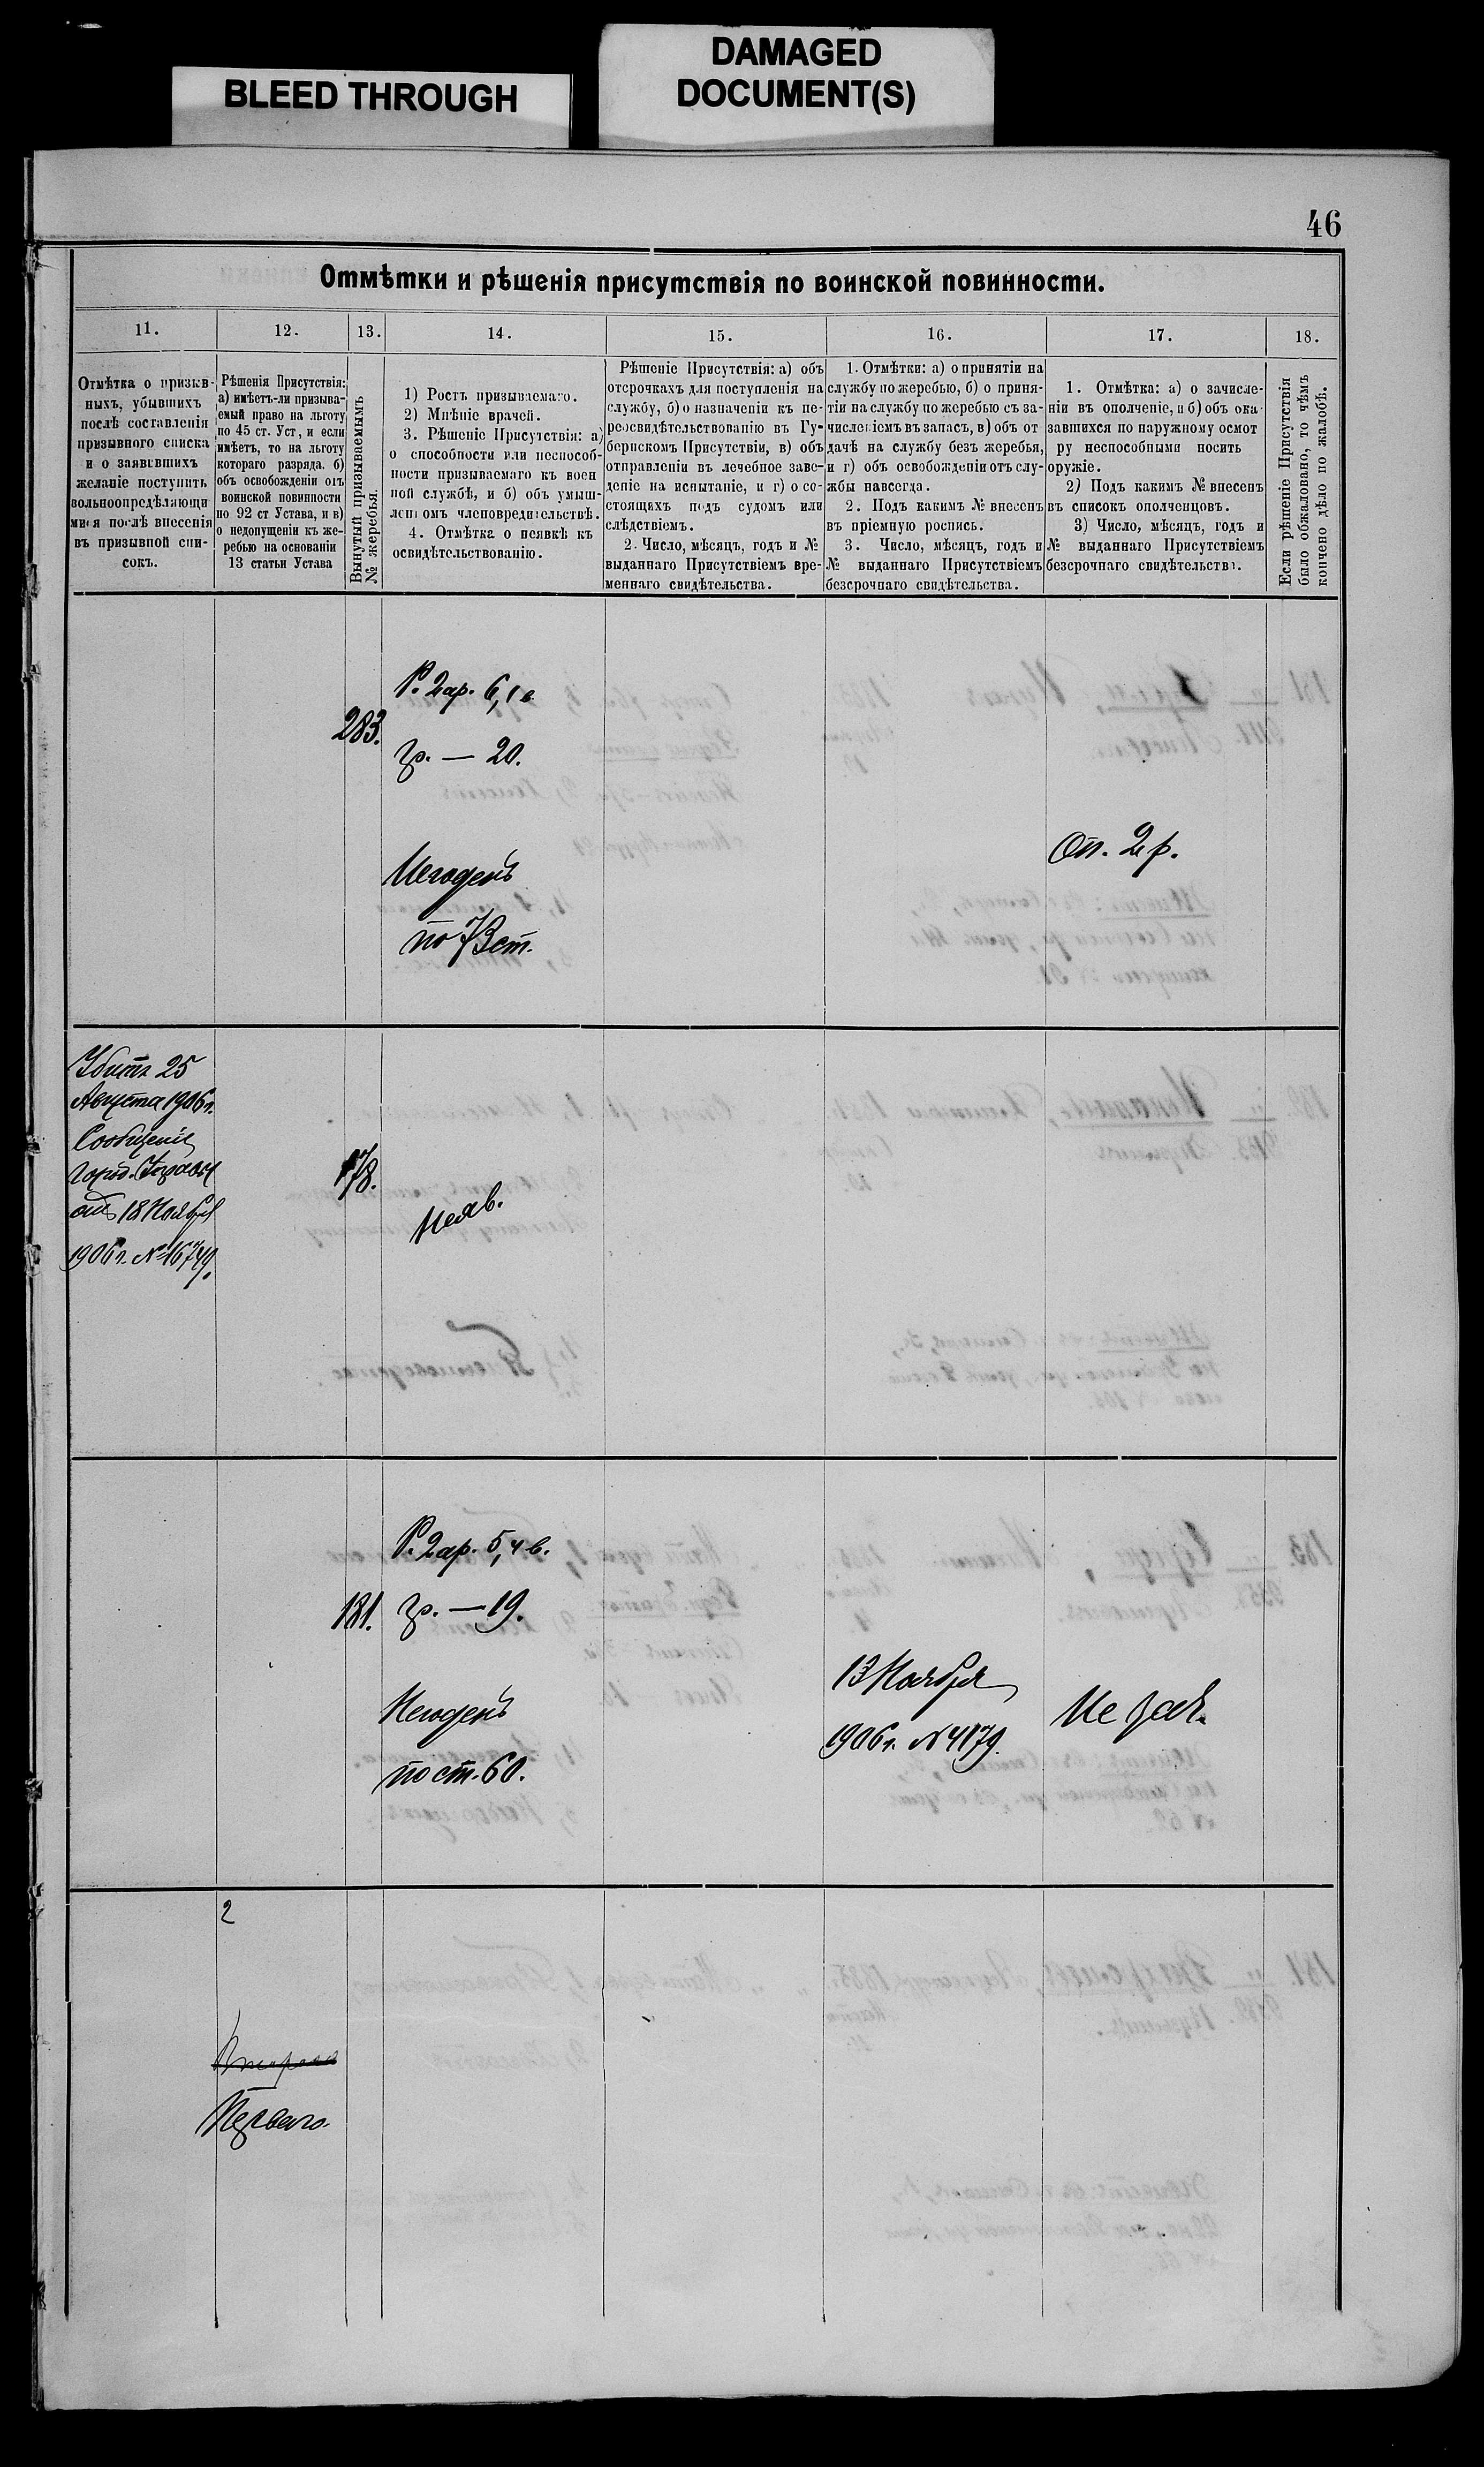 BLEED THROUGH
DAMAGED
DOCUMENT(S)
46
Отмѣтки и рѣшенія присутствія по воинской повинности.
11.
12.
13.
14.
15.
16.
17.
18.
Отмѣтка о призыв-
ныхъ, убывшихъ
послѣ составленія
призывного списка
и о заявившихъ
желаніе поступить
вольноопредѣляющи
мися послѣ внесенія
въ призывной спи-
сокъ.
Рѣшенія Присутствія:
а) имѣетъ-ли призыва-
емый право на льготу
по 45 ст. Уст, и если
имѣетъ, то на льготу
котораго разряда. б)
объ освобожденіи отъ
воинской повинности
по 92 ст Устава, и в)
о недопущеніи къ же-
ребью на основаніи
13 статьи Устава
Вынутый призываемымъ
№ жеребья.
1) Ростъ призываемаго.
2) Мнѣніе врачей.
3. Рѣшеніе Присутствія: а)
о способности или неспособ-
ности призываемаго къ воен
ной службѣ, и б) объ умыш-
леномъ членовредительствѣ.
4. Отмѣтка о неявкѣ къ
освидѣтельствованію.
Рѣшеніе Присутствія: а) объ
отсрочкахъ для поступленія на
службу, б) о назначеніи къ пе-
реосвидѣтельствованію въ Гу-
бернскомъ Присутствіи, в) объ
отправленіи въ лечебное заве-
деніе на испытаніе, и г) о со-
стоящихъ подъ судомъ или
слѣдствіемъ.
2. Число, мѣсяцъ, годъ и №
выданнаго Присутствіемъ вре-
меннаго свидѣтельства.
1. Отмѣтки: а) о принятіи на
службу по жеребью, б) о приня-
тіи на службу по жеребью съ за-
численіемъ въ запасъ, в) объ от
дачѣ на службу безъ жеребья,
и г) объ освобожденіи отъ слу-
жбы навсегда.
2. Подъ какимъ № внесенъ
въ пріемную роспись.
3. Число, мѣсяцъ, годъ и
№ выданнаго Присутствіемъ
безсрочнаго свидѣтельства.
1. Отмѣтка: а) о зачисле-
ніи въ ополченіе, и б) объ ока-
завшихся по наружному осмот
ру неспособными носить
оружіе.
2) Подъ какимъ № внесенъ
въ списокъ ополченцовъ.
3) Число, мѣсяцъ, годъ и
№ выданнаго Присутствіемъ
безсрочнаго свидѣтельства.
Если рѣшеніе Присутствія
было обжаловано, то чѣмъ
кончено дѣло по жалобѣ.
283.
Р. 2 ар. 6,1 в
гр. — 20.
Негоденъ
по 73 ст.
Оп. 2 р.
Убитъ 25
Августа 1906 г.
Сообщеніе
Город. Управы
отъ 18 Ноября
1906 г. № 16749.
178.
Неяв.
181.
Р. 2 ар. 5,4 в.
гр. — 19.
Негоденъ
по ст. 60.
13 Ноября
1906 г. № 4179.
Не зач.
2
Второго
Перваго.